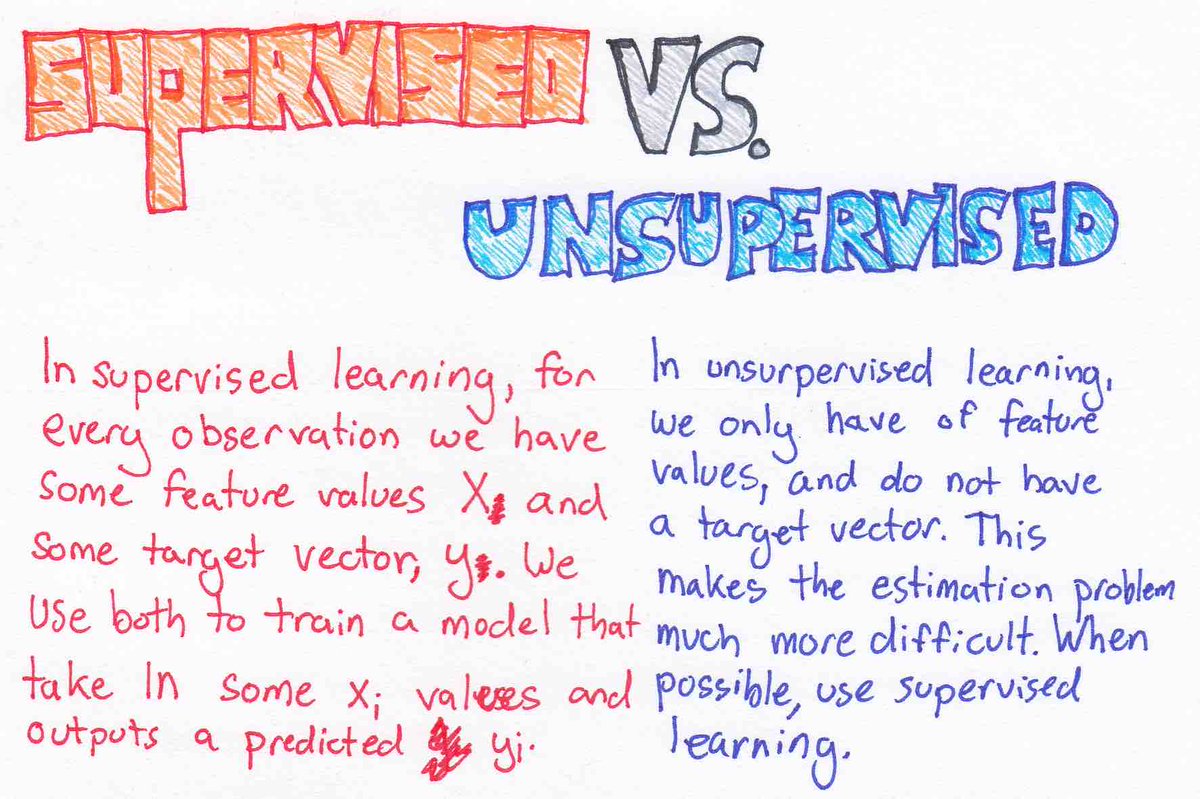 SUPERVISED VS.
UNSUPERVISED
In supervised learning, for
every observation we have
some feature values X and
some target vector, y. We
use both to train a model that
take In some xi values and
outputs a predicted yi.
In unsurpervised learning,
we only have of feature
values, and do not have
a target vector. This
makes the estimation problem
much more difficult. When
possible, use supervised
learning.